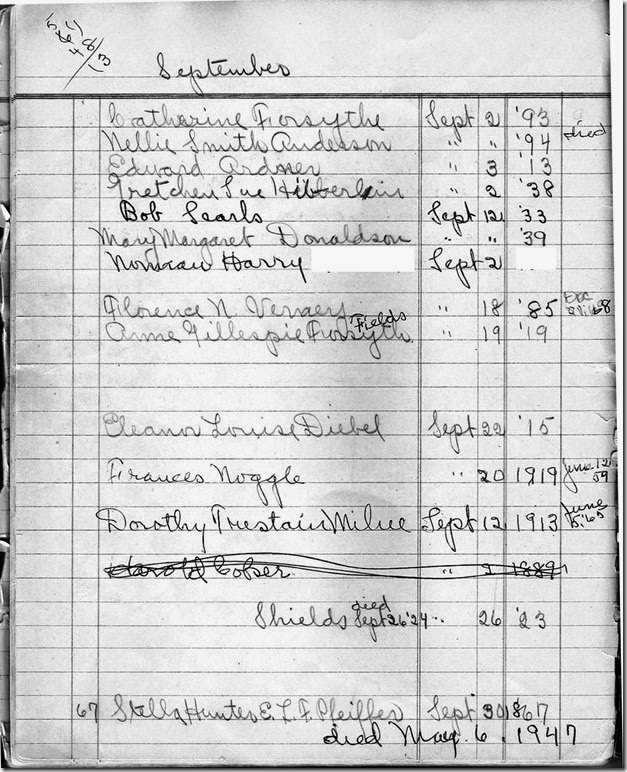 September
Catharine Forsythe Sept 2 '93
Nellie Smith Anderson " " '94 died
Edward Ardner " 3 '13
Gretchen Sue " 2 '38
Bob Searls Sept 12 '33
Mary Margaret Donaldson " " '39
Norman Harry Sept 2
Florence N. " 18 '85 Dec
Fields
Anne Gillespie Forsyth " 19 '19
Eleanor Louise Diebel Sept 22 '15
Frances Noggle " 20 1919 June 12 59
Dorothy Trestair Milne Sept 12 1913 June 5,'65
Harold " 2 1889
died
Shields Sept 26 '24 " 26 '23
67 Stella Hunter E. L. F. Pfeiffer Sept 30 1867
died May. 6. 1947